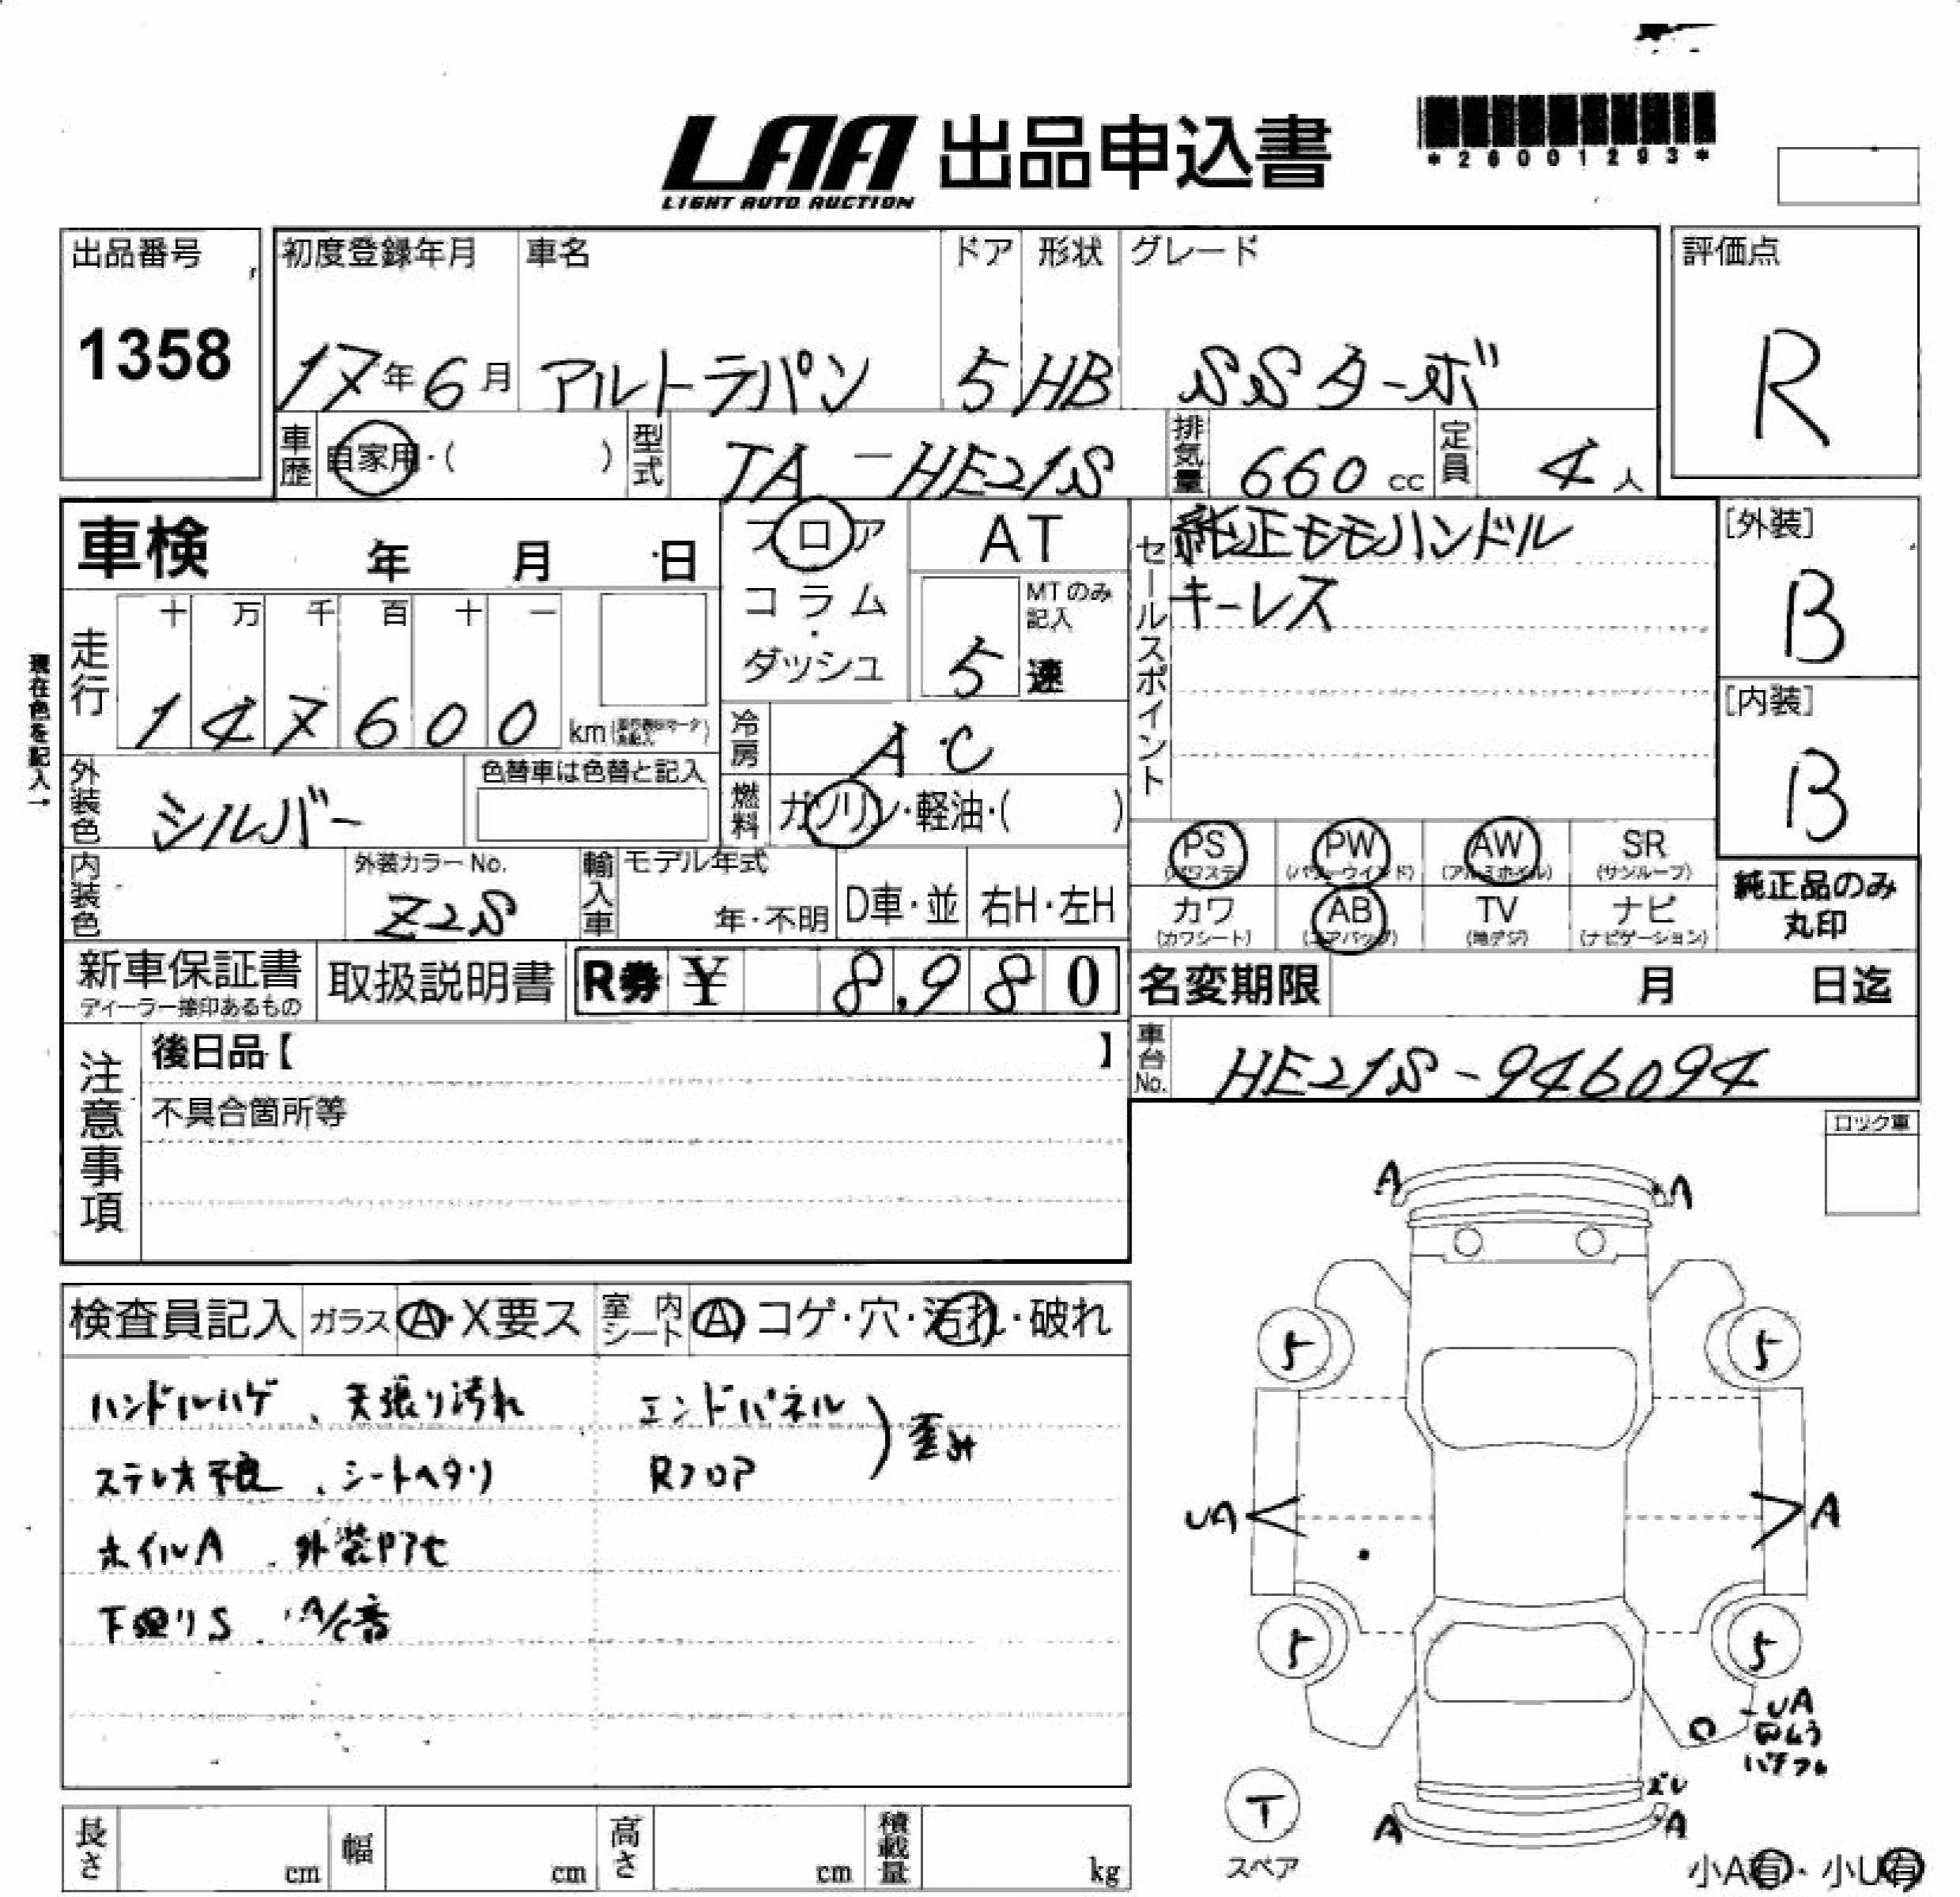 LAA 出品申込書
LIGHT AUTO AUCTION
*26001293*
出品番号
1358
初度登録年月
17年6月
車名
アルトラパン
ドア
5
形状
HB
グレード
SSターボ
評価点
R
車歴
自家用・( )
型式
TA-HE21S
排気量
660 cc
定員
4人
車検 年 月 日
現在色を記入→
走行
十 万 千 百 十 一
1 4 7 6 0 0 km
フロア
コラム
・
ダッシュ
AT
MTのみ
記入
5 速
冷房
A・C
燃料
ガソリン・軽油・( )
セールスポイント
純正モモハンドル
キーレス
[外装]
B
[内装]
B
外装色
シルバー
色替車は色替と記入
内装色
外装カラーNo.
Z2S
輸入車
モデル年式
年・不明
D車・並
右H・左H
PS
(パワステ)
PW
(パワーウインド)
AW
(アルミホイル)
SR
(サンルーフ)
カワ
(カワシート)
AB
(エアバッグ)
TV
(地デジ)
ナビ
(ナビゲーション)
純正品のみ
丸印
新車保証書
ディーラー捺印あるもの
取扱説明書
R券 ¥ 8,980
名変期限 月 日迄
車台No.
HE21S-946094
注意事項
後日品【 】
不具合箇所等
ロック車
検査員記入 ガラス A・X要ス 室内シート A コゲ・穴・汚れ・破れ
ハンドルハゲ、天張り汚れ
ステレオ不良、シートヘタリ
ホイルA、外装P7セ
下廻りS、A/C音
エンドパネル
Rフロア
) 歪み
A A
5 5
UA A
5 5
UA
バチフル
ズレ
A A
T
スペア
小A有・小U有
長さ cm 幅 cm 高さ cm 積載量 kg